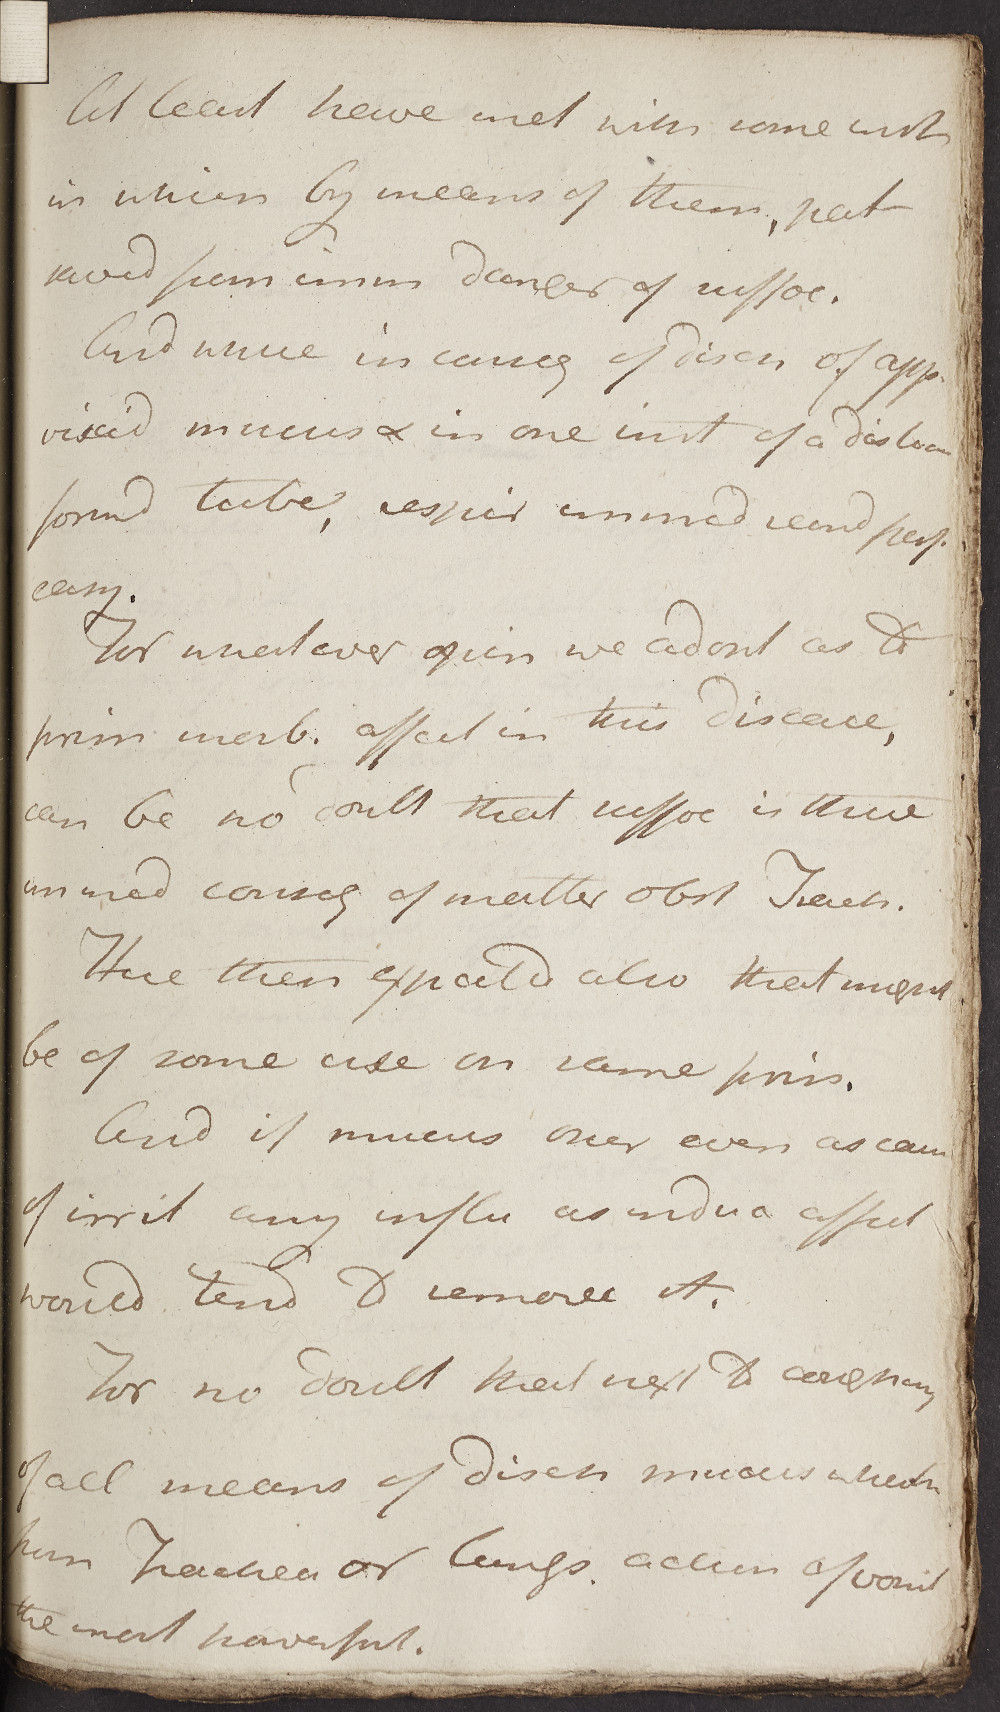 At least have met with some inst
in which by means of them, pat
saved from imm danger of suffoc.
And where in conseq of disch of app.
viscid mucus & in one inst of a distinct
form'd tube, respir immed rend perf.
easy.
For whatever opin we adopt as to
prim morb. affect in this disease,
can be no doubt that suffoc is there
immed conseq of matter obst Trach.
Here then expected also that might
be of some use on same prin.
And if mucus over even as cau
of irrit any influ as induc affect
would tend to remove it.
For no doubt that next to coughing
of all means of disch mucus wheth
from Trachea or lungs. action of vomit
the most powerful.